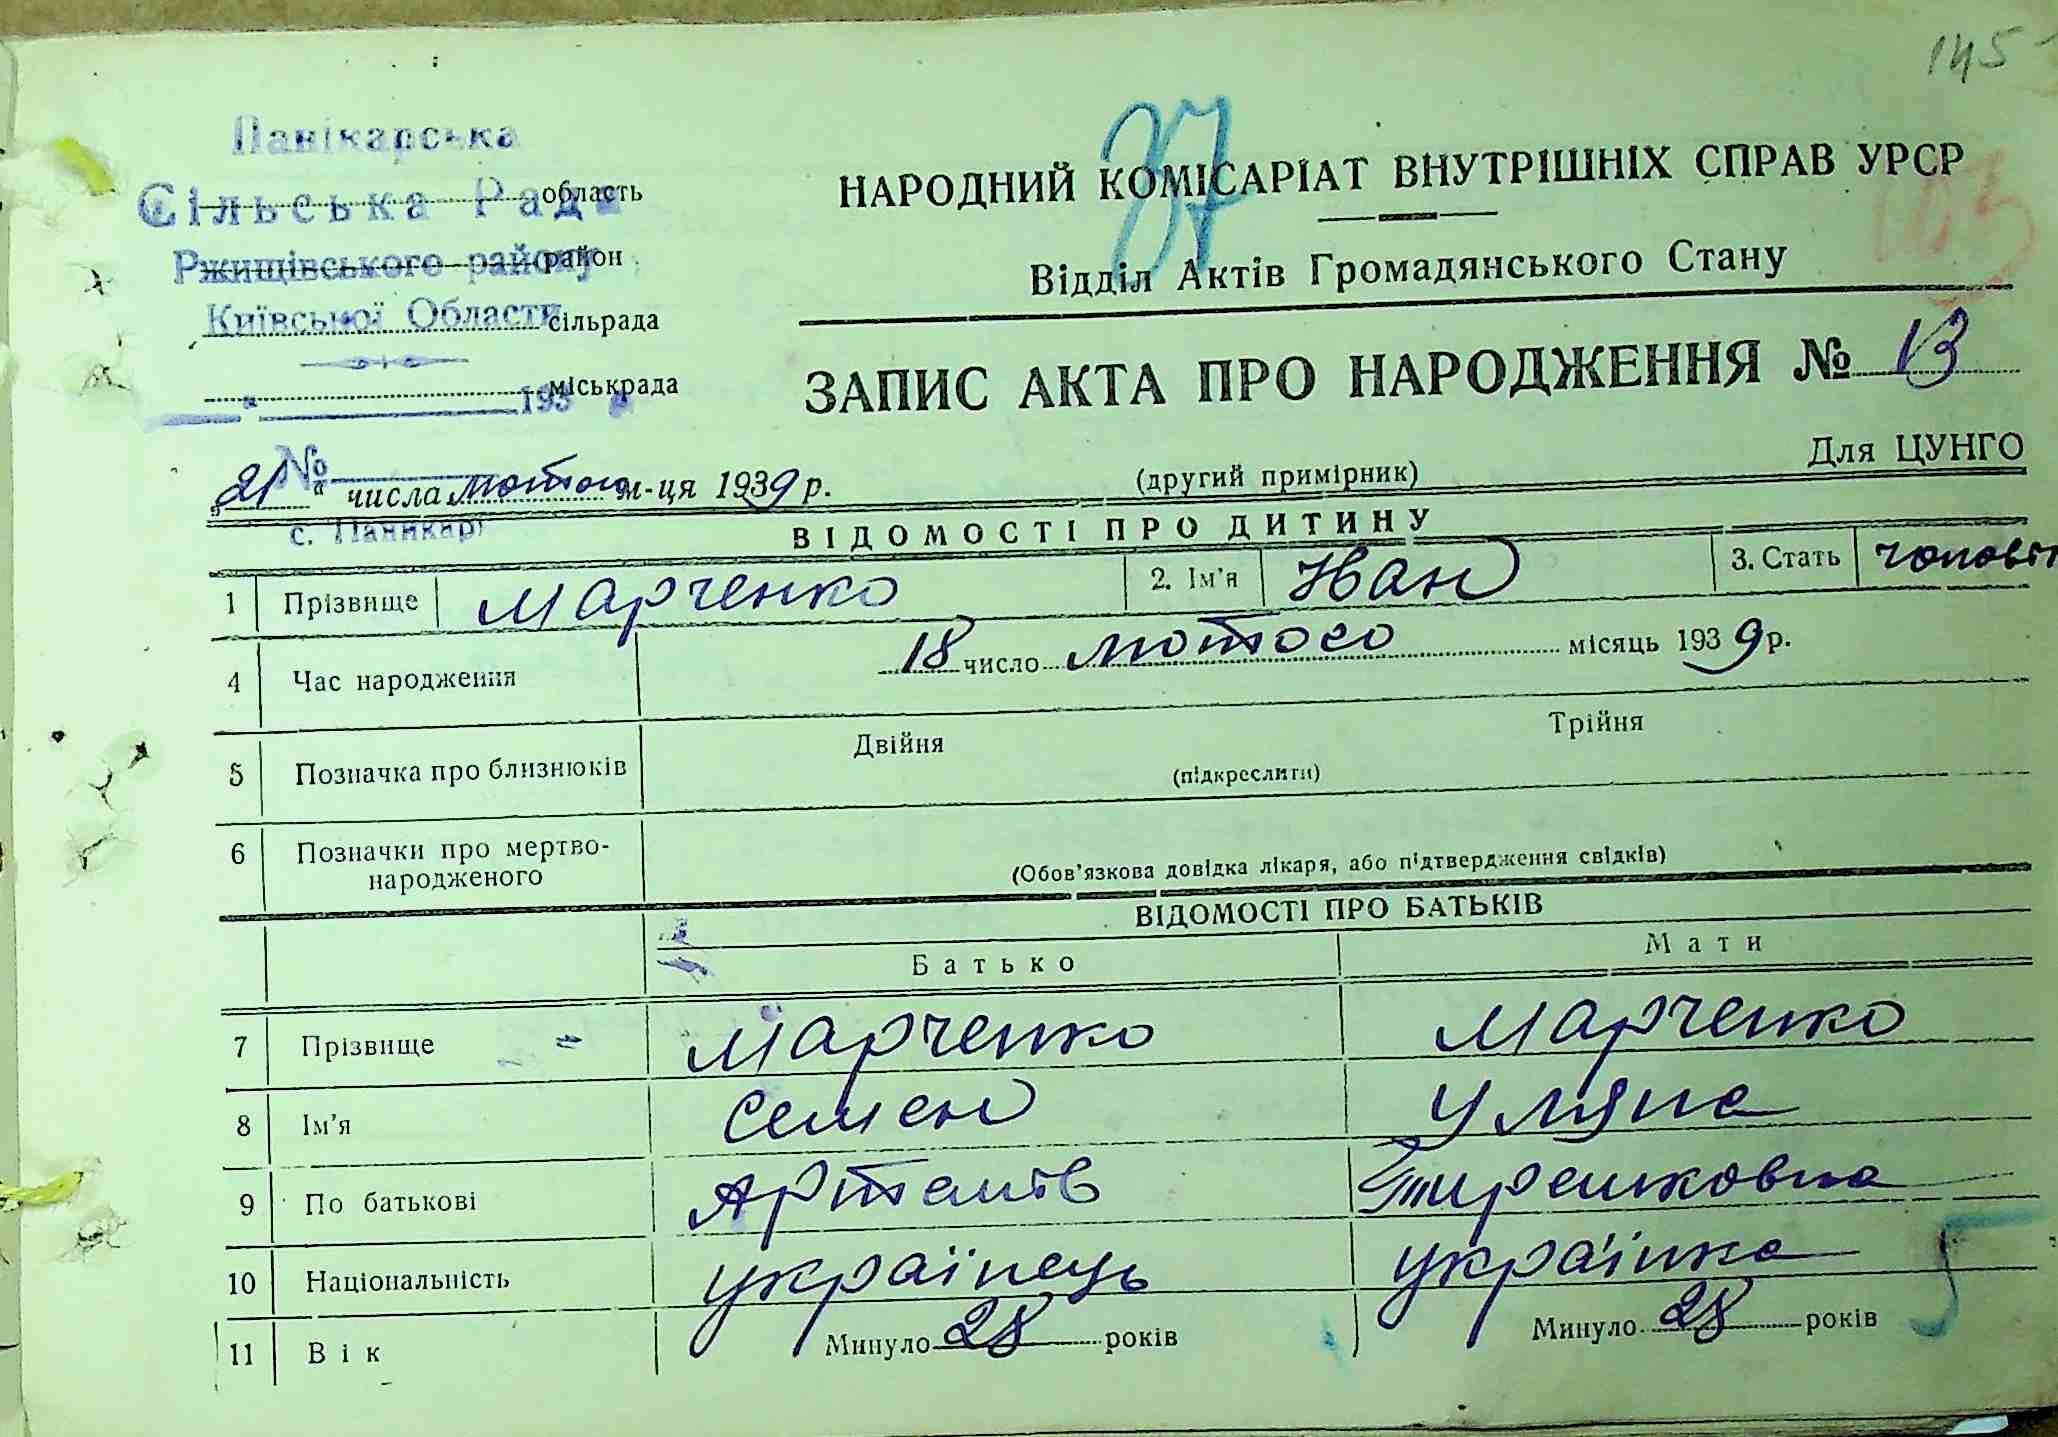 145
Панікарська
область
Сільська Рада
Ржищівського району
район
Київської Области
сільрада
міськрада
193
37
НАРОДНИЙ КОМІСАРІАТ ВНУТРІШНІХ СПРАВ УРСР
103
Відділ Актів Громадянського Стану
ЗАПИС АКТА ПРО НАРОДЖЕННЯ № 13
№
„21“ числа лютого м-ця 1939 р.
(другий примірник)
Для ЦУНГО
с. Паникарі
ВІДОМОСТІ ПРО ДИТИНУ
1 Прізвище Марченко 2. Ім'я Іван 3. Стать чоловіч
4 Час народження 18 число лютого місяць 1939 р.
5 Позначка про близнюків Двійня Трійня
(підкреслити)
6 Позначки про мертво-
народженого
(Обов'язкова довідка лікаря, або підтвердження свідків)
ВІДОМОСТІ ПРО БАТЬКІВ
Батько Мати
7 Прізвище Марченко Марченко
8 Ім'я Семен Уляна
9 По батькові Артемів
10 Національність українець українка
11 Вік Минуло 28 років Минуло 28 років
5